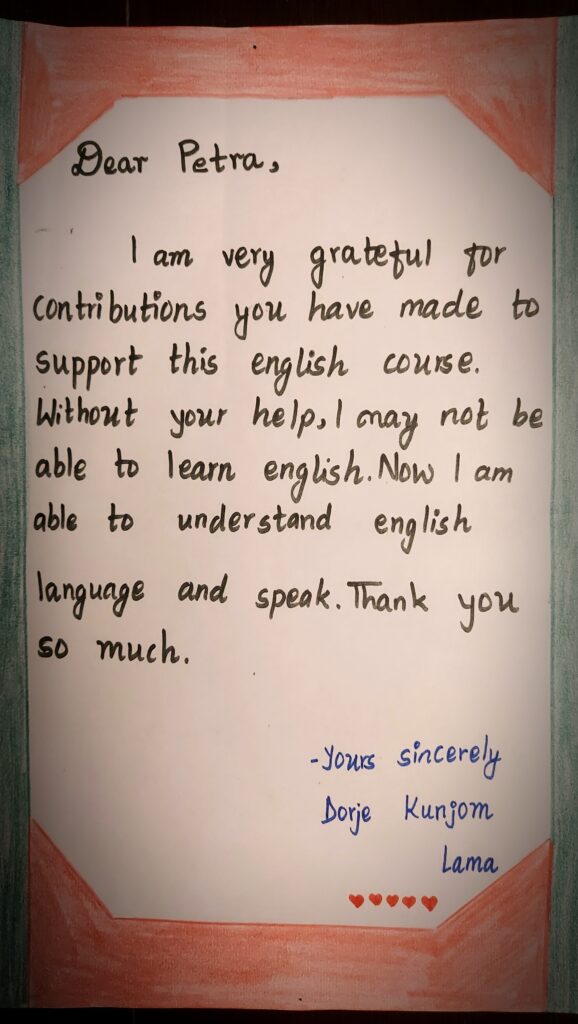 Dear Petra,
I am very grateful for
contributions you have made to
support this english course.
Without your help, I may not be
able to learn english. Now I am
able to understand english
language and speak. Thank you
so much.
-Yours sincerely
Dorje Kunjom
Lama